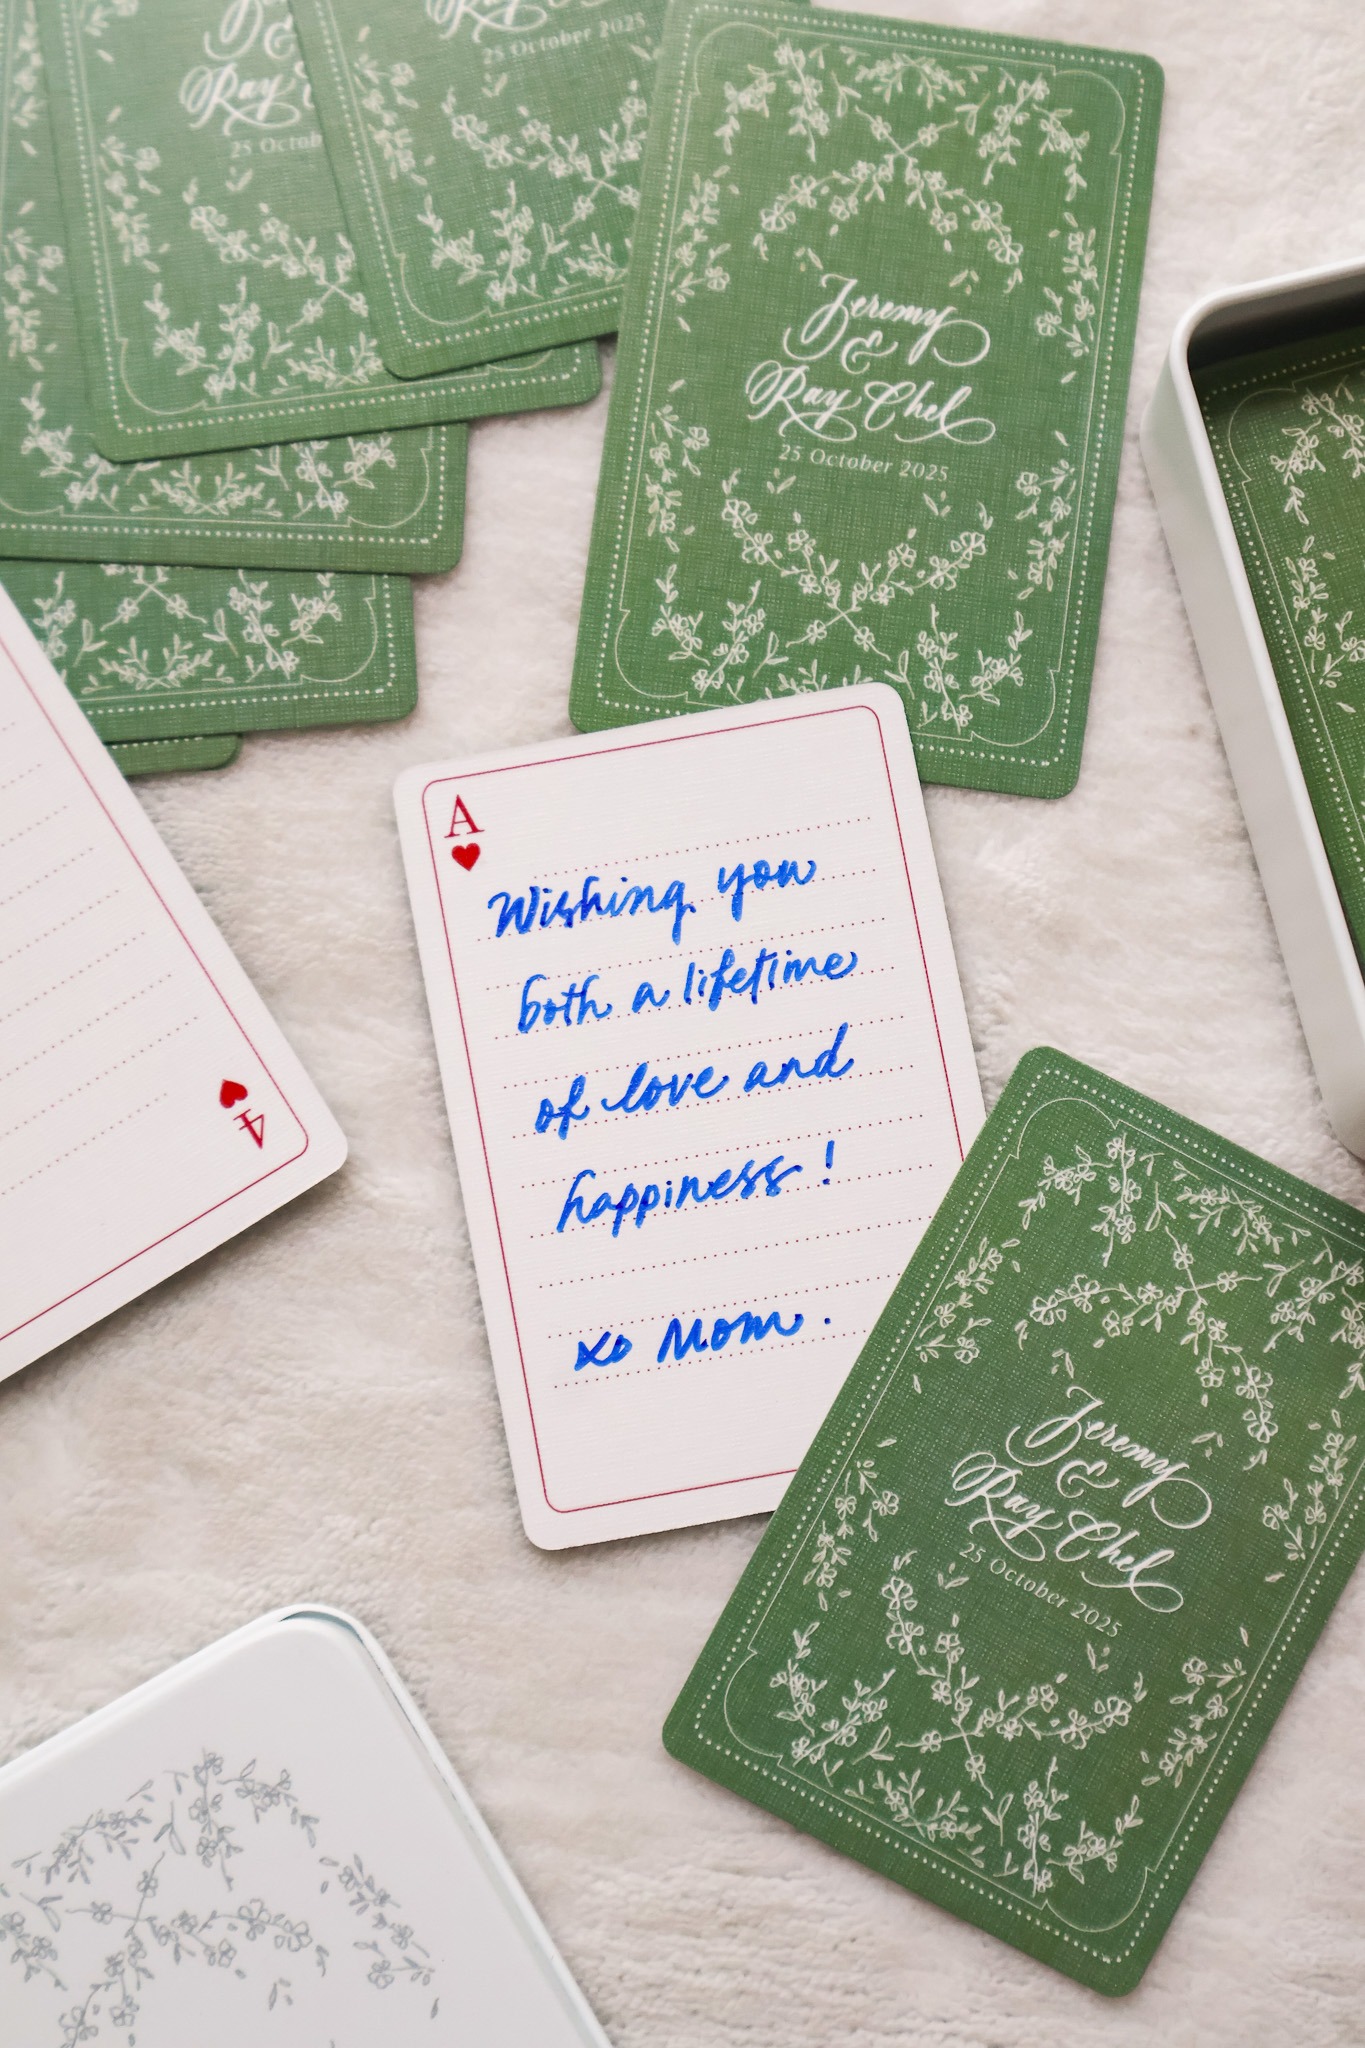 &
Ray
25 Octob
Ray
25 October 2025
Jeremy
&
Ray Chel
25 October 2025
A
Wishing you
both a lifetime
of love and
happiness!
xo Mom.
4
Jeremy
&
Ray Chel
25 October 2025